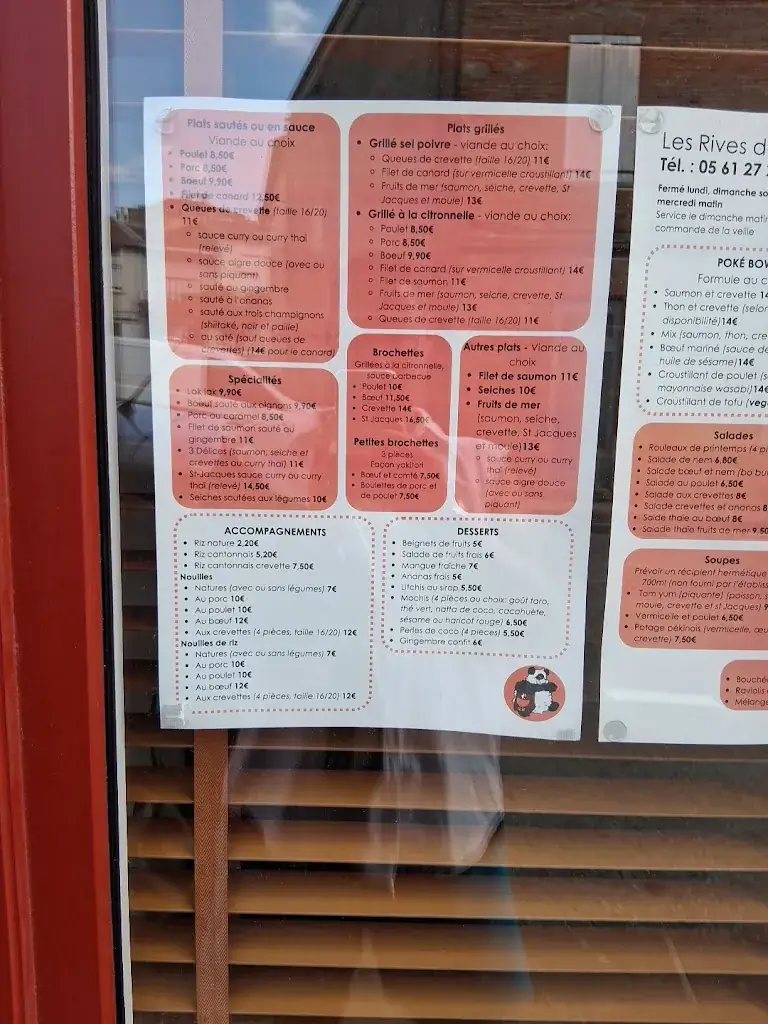 Plats sautés ou en sauce
Viande au choix
Poulet 8,50€
Porc 8,50€
Boeuf 9,90€
Filet de canard 12,50€
Queues de crevette (taille 16/20)
11€
sauce curry ou curry thaï
(relevé)
sauce aigre douce (avec ou
sans piquant)
sauté au gingembre
sauté à l'ananas
sauté aux trois champignons
(shiitaké, noir et paille)
au saté (sauf queues de
crevettes) (14€ pour le canard)
Plats grillés
Grillé sel poivre - viande au choix:
Queues de crevette (taille 16/20) 11€
Filet de canard (sur vermicelle croustillant) 14€
Fruits de mer (saumon, seiche, crevette, St
Jacques et moule) 13€
Grillé à la citronnelle - viande au choix:
Poulet 8,50€
Porc 8,50€
Boeuf 9,90€
Filet de canard (sur vermicelle croustillant) 14€
Filet de saumon 11€
Fruits de mer (saumon, seiche, crevette, St
Jacques et moule) 13€
Queues de crevette (taille 16/20) 11€
Spécialités
Lok lak 9,90€
Boeuf sauté aux oignons 9,90€
Porc au caramel 8,50€
Filet de saumon sauté au
gingembre 11€
3 Délices (saumon, seiche et
crevettes au curry thaï) 11€
St-Jacques sauce curry ou curry
thaï (relevé) 14,50€
Seiches sautées aux légumes 10€
Brochettes
Grillées à la citronnelle,
sauce barbecue
Poulet 10€
Bœuf 11,50€
Crevette 14€
St Jacques 16,50€
Petites brochettes
3 pièces
Façon yakitori
Bœuf et comté 7,50€
Boulettes de porc et
de poulet 7,50€
Autres plats - Viande au
choix
Filet de saumon 11€
Seiches 10€
Fruits de mer
(saumon, seiche,
crevette, St Jacques
et moule)13€
sauce curry ou curry
thaï (relevé)
sauce aigre douce
(avec ou sans
piquant)
ACCOMPAGNEMENTS
Riz nature 2,20€
Riz cantonnais 5,20€
Riz cantonnais crevette 7,50€
Nouilles
Natures (avec ou sans légumes) 7€
Au porc 10€
Au poulet 10€
Au bœuf 12€
Aux crevettes (4 pièces, taille 16/20) 12€
Nouilles de riz
Natures (avec ou sans légumes) 7€
Au porc 10€
Au poulet 10€
Au bœuf 12€
Aux crevettes (4 pièces, taille 16/20) 12€
DESSERTS
Beignets de fruits 5€
Salade de fruits frais 6€
Mangue fraîche 7€
Ananas frais 5€
Litchis au sirop 5,50€
Mochis (4 pièces au choix: goût taro,
thé vert, natta de coco, cacahuète,
sésame ou haricot rouge) 6,50€
Perles de coco (4 pièces) 5,50€
Gingembre confit 6€
Les Rives d
Tél. : 05 61 27
Fermé lundi, dimanche so
mercredi matin
Service le dimanche matin
commande de la veille
POKÉ BOW
Formule au c
Saumon et crevette 14
Thon et crevette (selon
disponibilité)14€
Mix (saumon, thon, cre
Bœuf mariné (sauce de
huile de sésame)14€
Croustillant de poulet (s
mayonnaise wasabi)14€
Croustillant de tofu (veg
Salades
Rouleaux de printemps (4 pi
Salade de nem 6,80€
Salade bœuf et nem (bo bu
Salade au poulet 6,50€
Salade aux crevettes 8€
Salade crevettes et ananas 8
Salde thaïe au bœuf 8€
Salade thaïe fruits de mer 9,50
Soupes
Prévoir un récipient hermétique
700ml (non fourni par l'établiss
Tom yum (piquante) (poisson, s
moule, crevette et st Jacques) 9
Vermicelle et poulet 6,50€
Potage pékinois (vermicelle, œu
crevette) 7,50€
Bouchée
Raviolis
Mélange